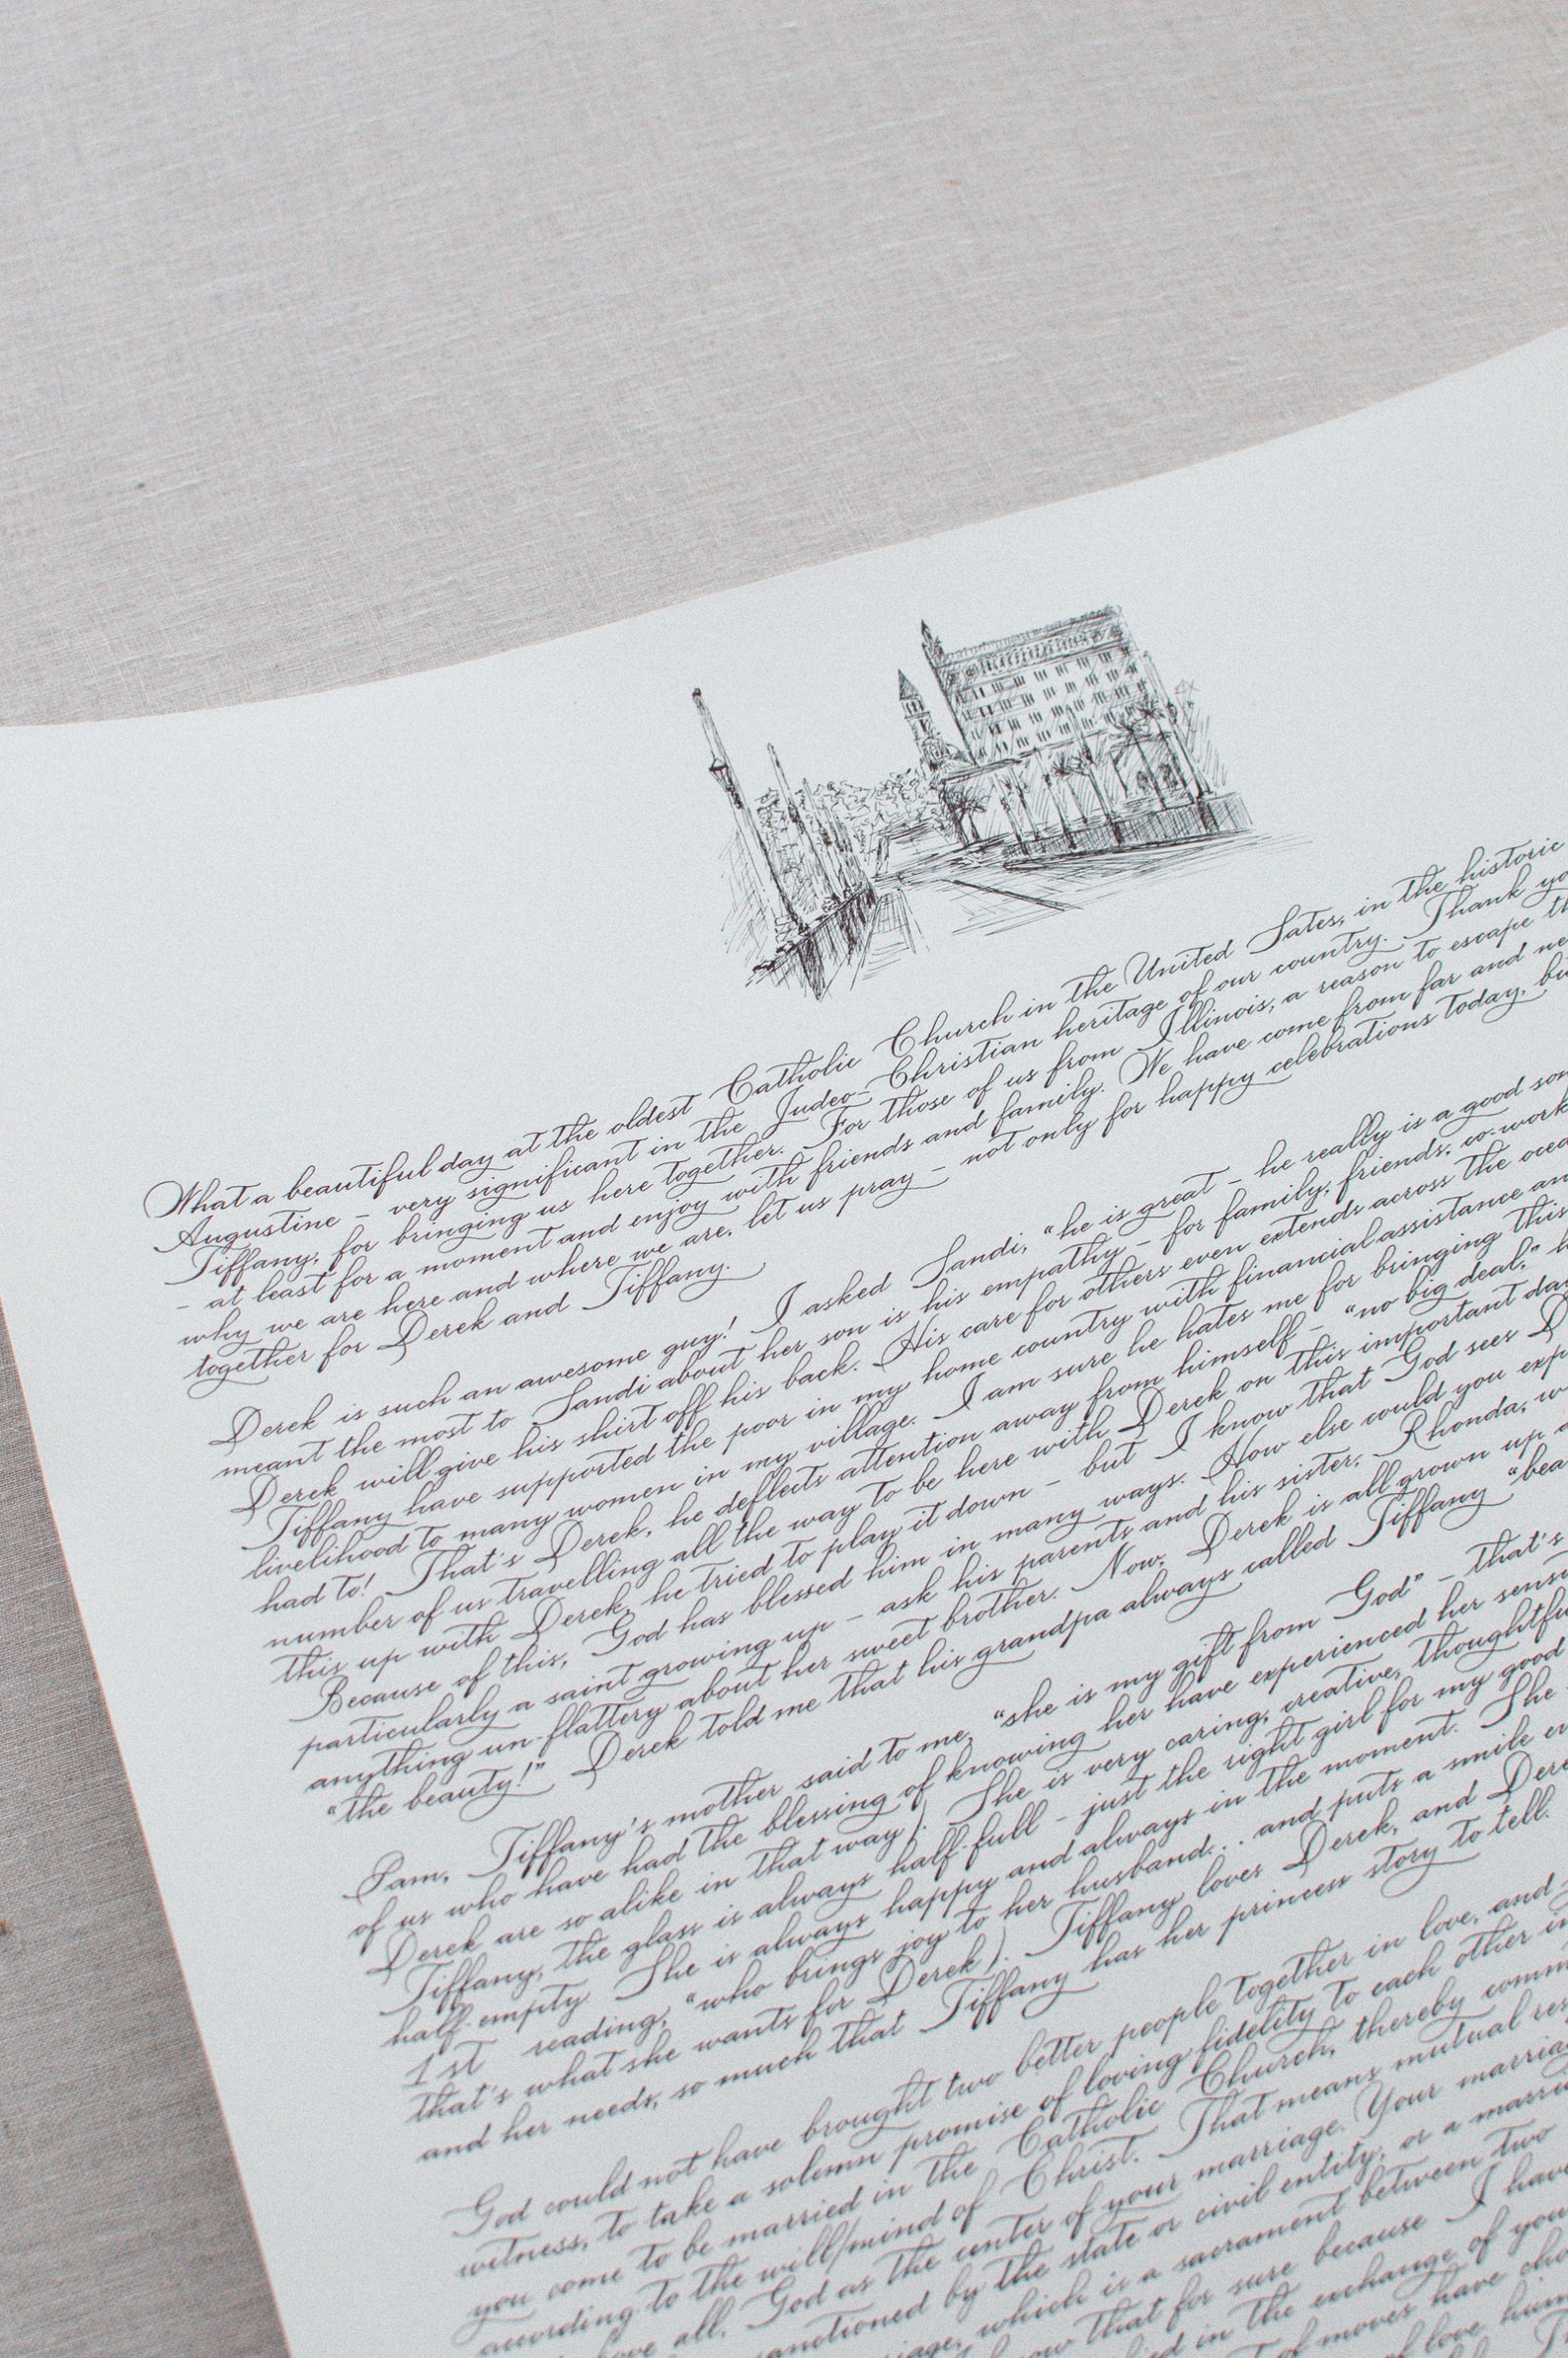 What a beautiful day at the oldest Catholic Church in the United Sates, in the historic
Augustine – very significant in the Judeo-Christian heritage of our country. Thank
Tiffany, for bringing us here together. For those of us from Illinois, a reason to escape
– at least for a moment and enjoy with friends and family. We have come from far and
why we are here and where we are, let us pray – not only for happy celebrations today,
together for Derek and Tiffany.
Derek is such an awesome guy! I asked Sandi, “he is great – he really is a good
meant the most to Sandi about her son is his empathy – for family, friends, co-work
Derek will give his shirt off his back. His care for others even extends across the
Tiffany have supported the poor in my home country with financial assistance
livelihood to many women in my village. I am sure he hates me for bringing this
had to! That's Derek, he deflects attention away from himself – “no big deal,”
number of us travelling all the way to be here with Derek on this important
this up with Derek, he tried to play it down – but I know that God sees
Because of this, God has blessed him in many ways. How else could you
particularly a saint growing up – ask his parents and his sister, Rhonda,
anything un-flattery about her sweet brother. Now, Derek is all grown up
“the beauty!” Derek told me that his grandpa always called Tiffany
Pam, Tiffany's mother said to me, “she is my gift from God” – that's
of us who have had the blessing of knowing her have experienced her
Derek are so alike in that way). She is very caring, creative,
Tiffany, the glass is always half-full – just the right girl for my good
half-empty She is always happy and always in the moment. She
1st reading, “who brings joy to her husband... and puts a smile
that's what she wants for Derek). Tiffany loves Derek, and
and her needs, so much that Tiffany has her princess story to tell.
God could not have brought two better people together in love, and
witness, to take a solemn promise of loving fidelity to each other
you come to be married in the Catholic Church, thereby
according to the will/mind of Christ. That means mutual
all, God as the center of your marriage. Your
sanctioned by the state or civil entity, or a
which is a sacrament between two
know that for sure because I have
in the exchange of
of moves have
of love